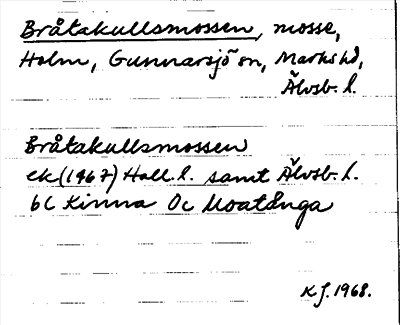 Bråtakullsmossen, mosse,
Holm, Gunnarsjö sn, Marks hd,
Älvsb. l.
Bråtakullsmossen
ek (1967) Hall. l. samt Älvsb. l.
6C Kinna 0c Moatånga
KJ. 1968.